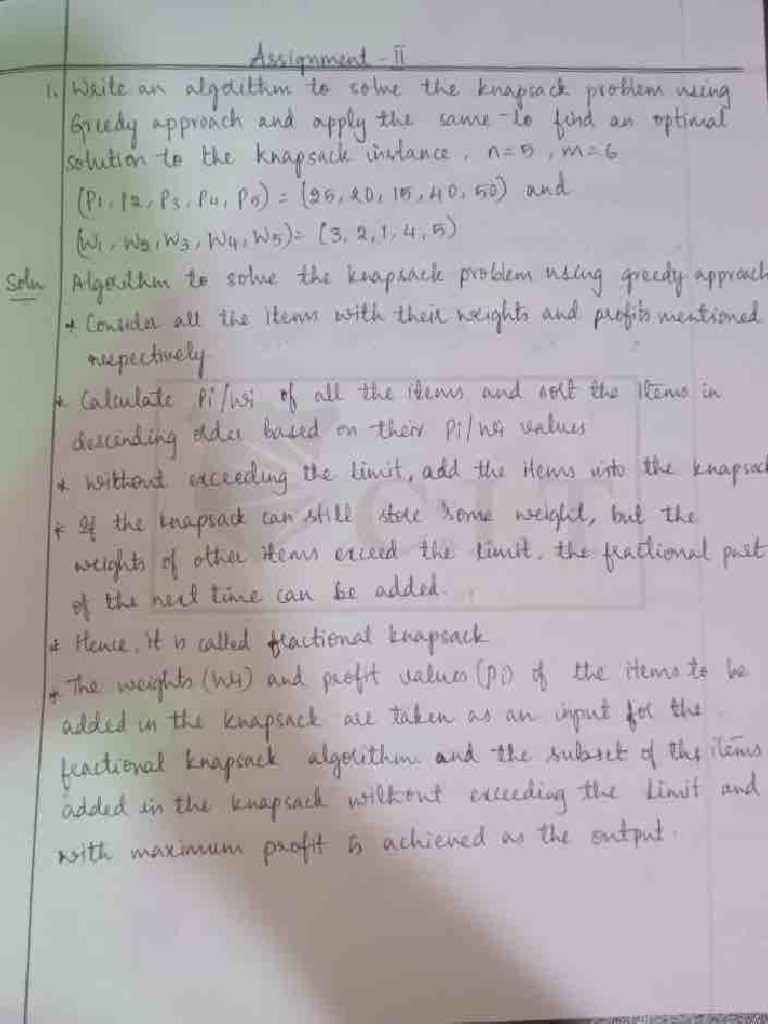 Assignment - II
1. Write an algorithm to solve the knapsack problem using
Greedy approach and apply the same to find an optimal
solution to the knapsack instance, n=5, m=6
(P1, P2, P3, P4, P5) = (25, 20, 15, 40, 50) and
(W1, W2, W3, W4, W5) = (3, 2, 1, 4, 5)
Soln Algorithm to solve the knapsack problem using greedy approach
* Consider all the items with their weights and profits mentioned
respectively
* Calculate Pi/wi of all the items and sort the items in
descending order based on their Pi/wi values
* without exceeding the limit, add the items into the knapsack
* If the knapsack can still store some weight, but the
weights of other items exceed the limit, the fractional part
of the next time can be added.
* Hence, it is called fractional knapsack
* The weights (Wi) and profit values (Pi) of the items to be
added in the knapsack are taken as an input for the
fractional knapsack algorithm and the subset of the items
added in the knapsack without exceeding the limit and
with maximum profit is achieved as the output.
CIT